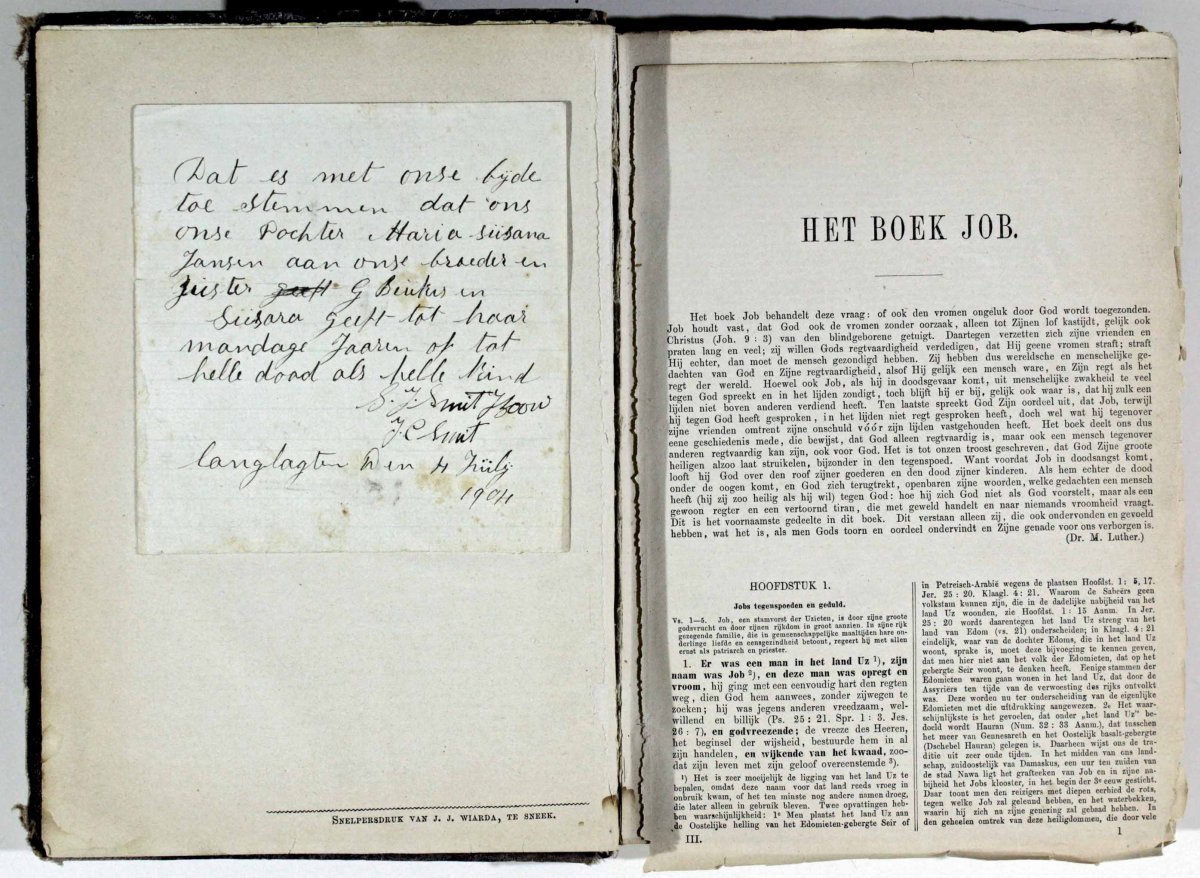 Dat es met onse byde
toe stemmen dat ons
onse Dochter Maria Susana
Jansen aan onse broeder en
suster geeft G Beukes en
Susara geeft tot haar
mandage Jaaren of tot
helle dood als helle kind
J C Smit
langlagten Den 4 July
1904
SNELPERSDRUK VAN J. J. WIARDA, TE SNEEK.
HET BOEK JOB.
Het boek Job behandelt deze vraag: of ook den vromen ongeluk door God wordt toegezonden.
Job houdt vast, dat God ook de vromen zonder oorzaak, alleen tot Zijnen lof kastijdt, gelijk ook
Christus (Joh. 9 : 3) van den blindgeborene getuigt. Daartegen verzetten zich zijne vrienden en
praten lang en veel; zij willen Gods regtvaardigheid verdedigen, dat Hij geene vromen straft; straft
Hij echter, dan moet de mensch gezondigd hebben. Zij hebben dus wereldsche en menschelijke ge-
dachten van God en Zijne regtvaardigheid, alsof Hij gelijk een mensch ware, en Zijn regt als het
regt der wereld. Hoewel ook Job, als hij in doodsgevaar komt, uit menschelijke zwakheid te veel
tegen God spreekt en in het lijden zondigt, toch blijft hij er bij, gelijk ook waar is, dat hij zulk een
lijden niet boven anderen verdiend heeft. Ten laatste spreekt God Zijn oordeel uit, dat Job, terwijl
hij tegen God heeft gesproken, in het lijden niet regt gesproken heeft, doch wel wat hij tegenover
zijne vrienden omtrent zijne onschuld vóór zijn lijden vastgehouden heeft. Het boek deelt ons dus
eene geschiedenis mede, die bewijst, dat God alleen regtvaardig is, maar ook een mensch tegenover
anderen regtvaardig kan zijn, ook voor God. Het is tot onzen troost geschreven, dat God Zijne groote
heiligen alzoo laat struikelen, bijzonder in den tegenspoed. Want voordat Job in doodsangst komt,
looft hij God over den roof zijner goederen en den dood zijner kinderen. Als hem echter de dood
onder de oogen komt, en God zich terugtrekt, openbaren zijne woorden, welke gedachten een mensch
heeft (hij zij zoo heilig als hij wil) tegen God: hoe hij zich God niet als God voorstelt, maar als een
gewoon regter en een vertoornd tiran, die met geweld handelt en naar niemands vroomheid vraagt.
Dit is het voornaamste gedeelte in dit boek. Dit verstaan alleen zij, die ook ondervonden en gevoeld
hebben, wat het is, als men Gods toorn en oordeel ondervindt en Zijne genade voor ons verborgen is.
(Dr. M. Luther.)
HOOFDSTUK 1.
Jobs tegenspoeden en geduld.
Vs. 1—5. Job, een stamvorst der Uzieten, is door zijne groote
godsvrucht en door zijnen rijkdom in groot aanzien. In zijne rijk
gezegende familie, die in gemeenschappelijke maaltijden hare on-
derlinge liefde en eensgezindheid betoont, regeert hij met allen
ernst als patriarch en priester.
1. Er was een man in het land Uz ¹), zijn
naam was Job ²), en deze man was opregt en
vroom, hij ging met een eenvoudig hart den regten
weg, dien God hem aanwees, zonder zijwegen te
zoeken; hij was jegens anderen vreedzaam, wel-
willend en billijk (Ps. 25 : 21. Spr. 1 : 3. Jes.
26 : 7), en godvreezende; de vreeze des Heeren,
het beginsel der wijsheid, bestuurde hem in al
zijn handelen, en wijkende van het kwaad, zoo-
dat zijn leven met zijn geloof overeenstemde ³).
¹) Het is zeer moeijelijk de ligging van het land Uz te
bepalen, omdat deze naam voor dat land reeds vroeg in
onbruik kwam, of het ten minste nog andere namen droeg,
die later alleen in gebruik bleven. Twee opvattingen heb-
ben waarschijnlijkheid: 1º Men plaatst het land Uz aan
de Oostelijke helling van het Edomieten-gebergte Seir of
III.
in Petreisch-Arabië wegens de plaatsen Hoofdst. 1 : 5, 17.
Jer. 25 : 20. Klaagl. 4 : 21. Waarom de Sabeërs geen
volkstam kunnen zijn, die in de dadelijke nabijheid van het
land Uz woonden, zie Hoofdst. 1 : 15 Aanm. In Jer.
25 : 20 wordt daarentegen het land Uz streng van het
land van Edom (vs. 21) onderscheiden; in Klaagl. 4 : 21
eindelijk, waar van de dochter Edoms, die in het land Uz
woont, sprake is, moet deze bijvoeging te kennen geven,
dat men hier niet aan het volk der Edomieten, dat op het
gebergte Seir woont, te denken heeft. Eenige stammen der
Edomieten waren gaan wonen in het land Uz, dat door de
Assyriërs ten tijde van de verwoesting des rijks ontvolkt
was. Deze worden nu ter onderscheiding van de eigenlijke
Edomieten met die uitdrukking aangewezen. 2º Het waar-
schijnlijkste is het gevoelen, dat onder „het land Uz” be-
doeld wordt Hauran (Num. 32 : 33 Aanm.), dat tusschen
het meer van Gennesareth en het Oostelijk basalt-gebergte
(Dschebel Hauran) gelegen is. Daarheen wijst ons de tra-
ditie uit zeer oude tijden. In het midden van ons land-
schap, zuidoostelijk van Damaskus, een uur ten zuiden van
de stad Nawa ligt het grafteeken van Job en in zijne na-
bijheid het Jobs klooster, in het begin der 3e eeuw gesticht.
Daar toont men den reizigers met diepen eerbied de rots,
tegen welke Job zal geleund hebben, en het waterbekken,
waarin hij zich na zijne genezing zal gebaad hebben. In
den geheelen omtrek van deze heiligdommen, die door vele
1